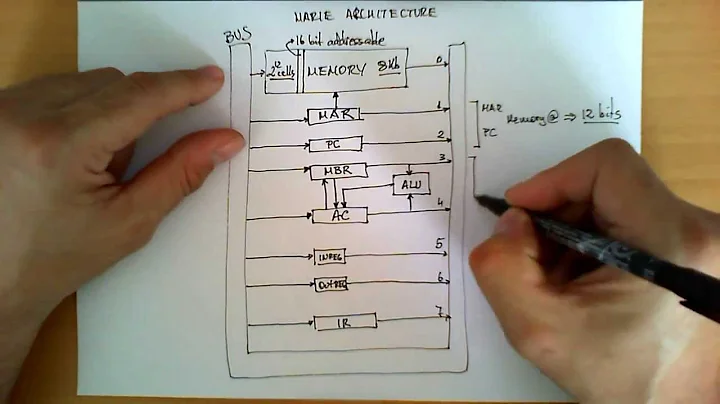 MARIE ARCHITECTURE
BUS
16 bit addressable
2^12 cells
MEMORY 8Kb
0
MAR
1
MAR
Memory @ ⇒ 12 bits
PC
PC
2
MBR
3
ALU
AC
4
INREG
5
OUTREG
6
IR
7